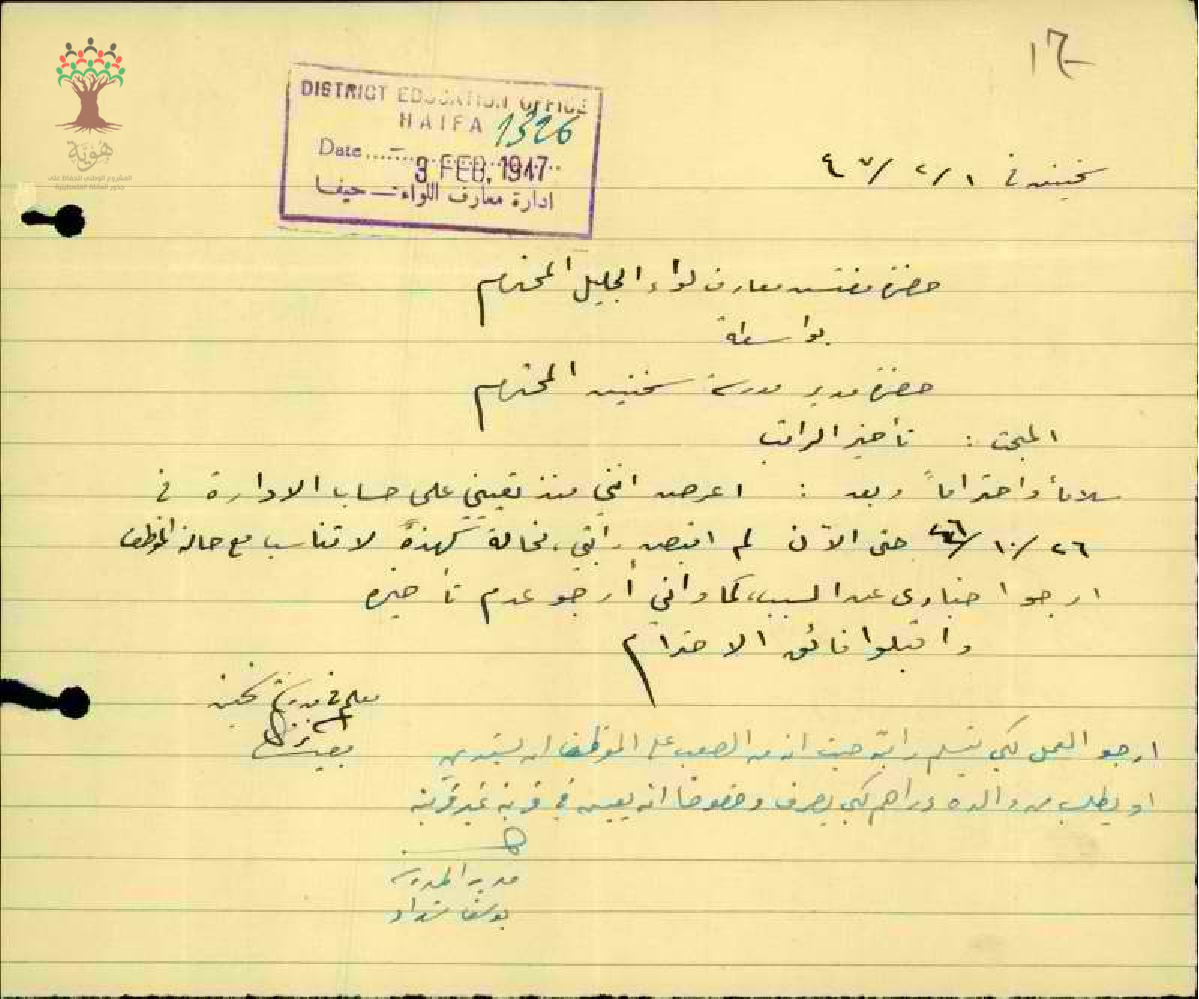 ١٦
هوية
المشروع الوطني للحفاظ على
جذور العائلة الفلسطينية
DISTRICT EDUCATION OFFICE
HAIFA 1326
Date 3 FEB. 1947
ادارة معارف اللواء – حيفا
سخنين في ١/٢/٤٧
حضرة مفتش معارف لواء الجليل المحترم
بواسطة
حضرة مدير مدرسة سخنين المحترم
المبحث : تأخير الراتب
سلاماً واحتراماً وبعد : اعرض انني منذ تعييني على حساب الادارة في
٢٦/١٠/٤٦ حتى الآن لم اقبض راتبي، فحالة كهذه لا تتناسب مع حالة الموظف
ارجو اخباري عن السبب، كما واني أرجو عدم تأخيره
واقبلوا فائق الاحترام
معلم في مدرسة سخنين
ارجو العمل لكي يتسلم راتبه حيث انه من الصعب على الموظف ان يستدين
او يطلب من والده دراهم لكي يصرف وخصوصا انه يعيش في قرية غير قريته
مدير المدرسة
يوسف شداد